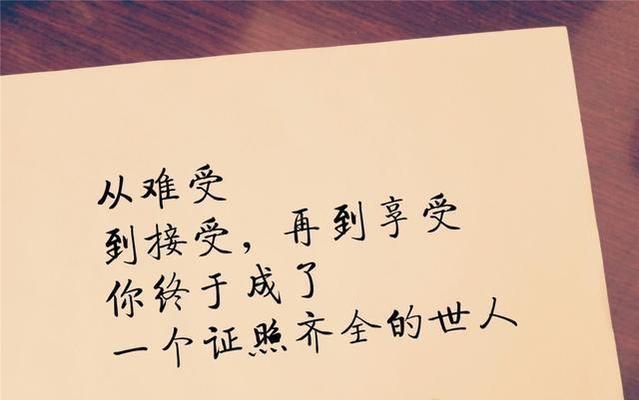 从难受
到接受，再到享受
你终于成了
一个证照齐全的世人